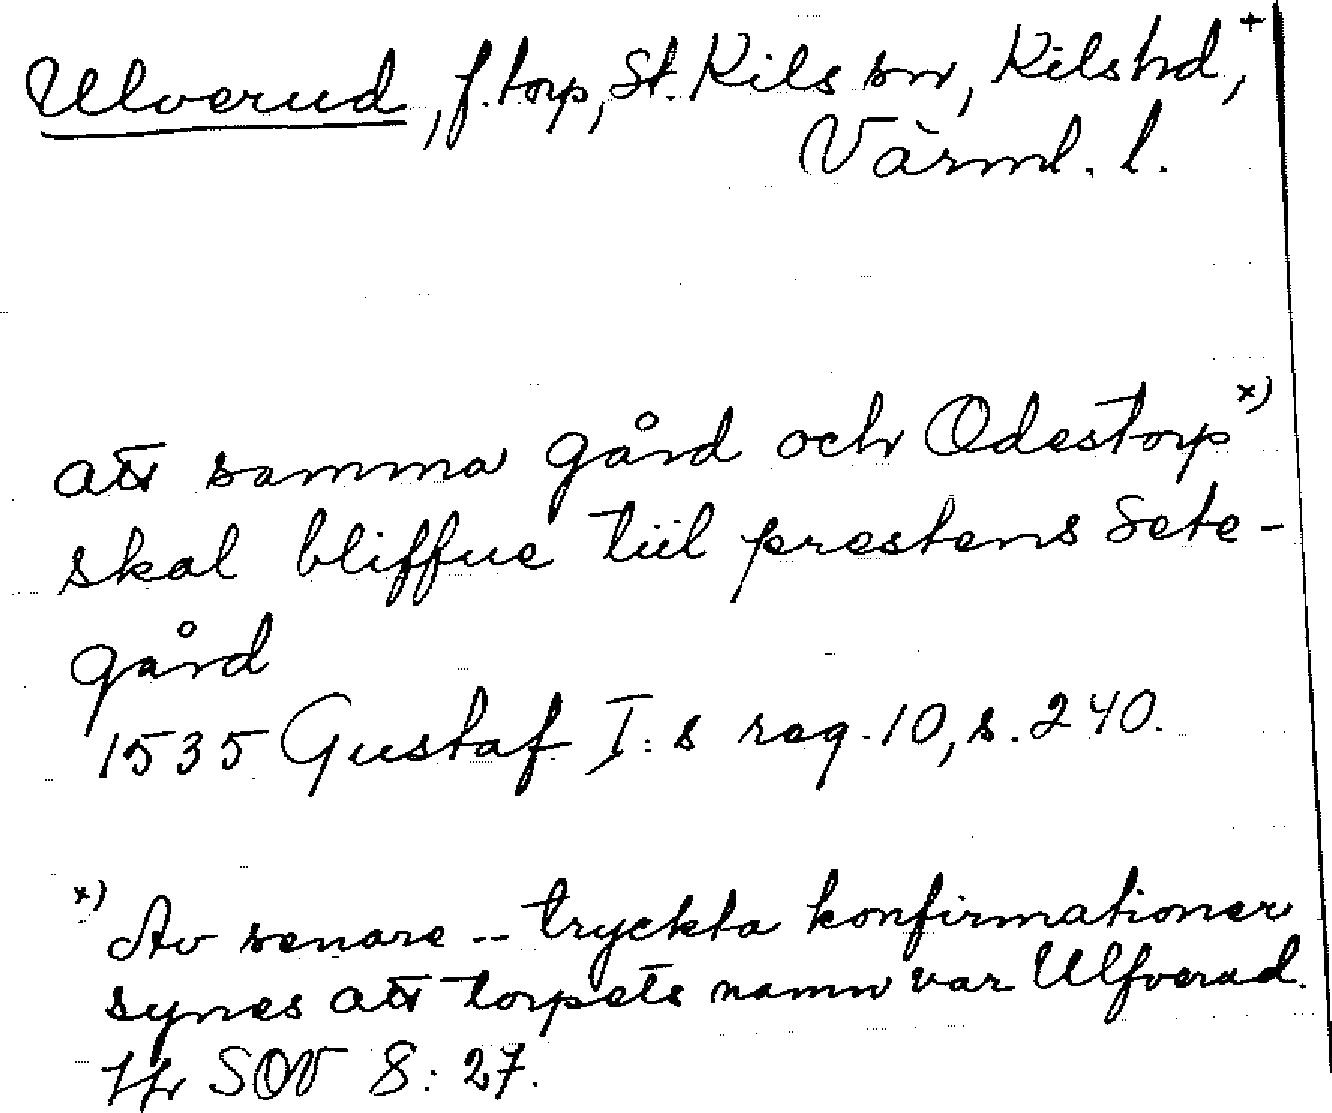 Ulverud, f. torp, St. Kils sn, Kils hd, +
Värml. l.
att samma gård och Odestorp x)
skal bliffue tiil prestens sete-
gård
1535 Gustaf I:s reg. 10, s. 240.
x) Av senare -- tryckta konfirmationer
synes att torpets namn var Ulfverud.
Jfr SOV 8: 27.